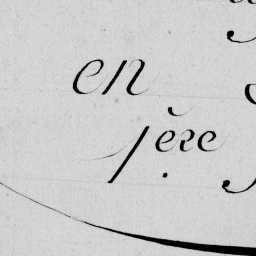 en
père